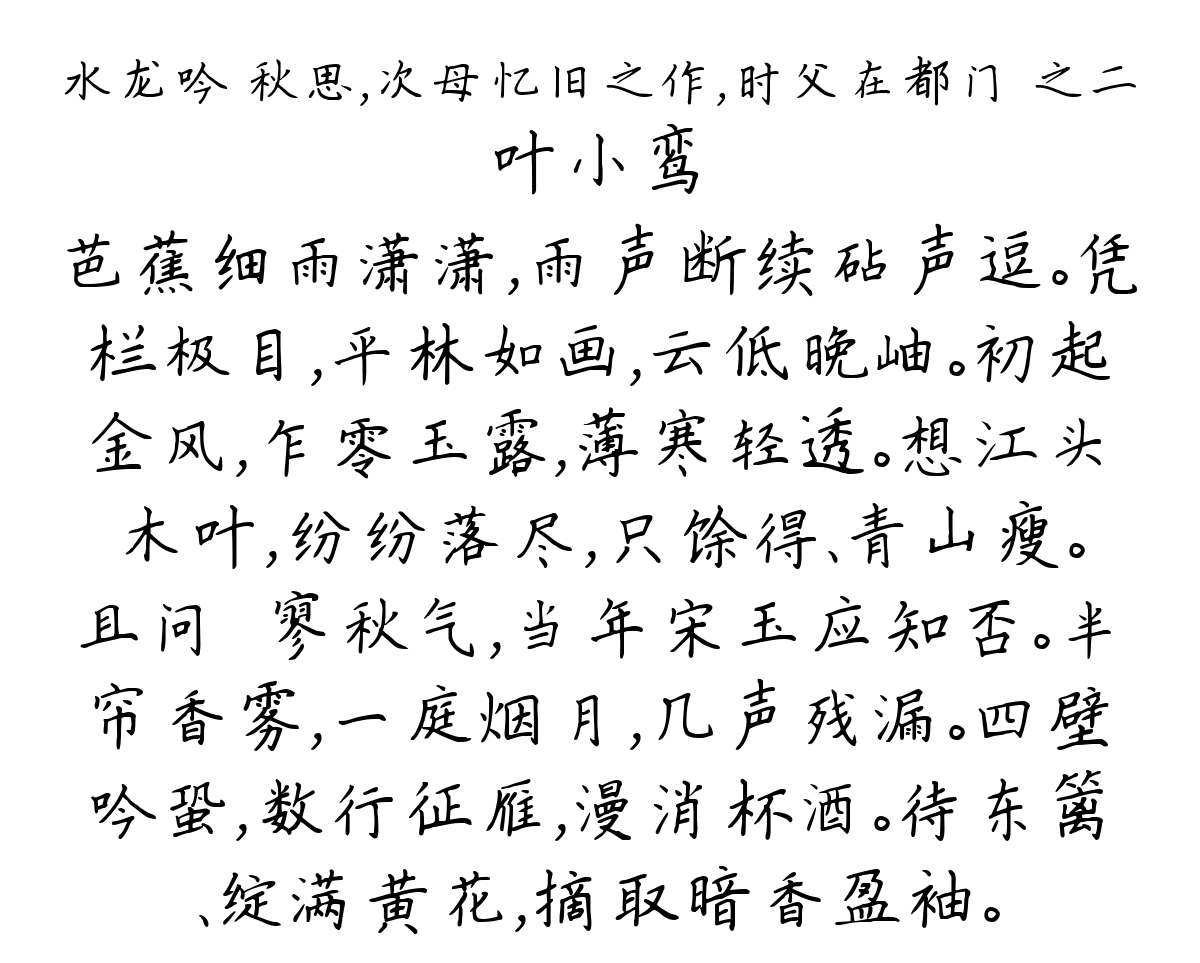 水龙吟 秋思,次母忆旧之作,时父在都门 之二
叶小鸾
芭蕉细雨潇潇,雨声断续砧声逗。凭
栏极目,平林如画,云低晚岫。初起
金风,乍零玉露,薄寒轻透。想江头
木叶,纷纷落尽,只馀得、青山瘦。
且问 寥秋气,当年宋玉应知否。半
帘香雾,一庭烟月,几声残漏。四壁
吟蛩,数行征雁,漫消杯酒。待东篱
、绽满黄花,摘取暗香盈袖。